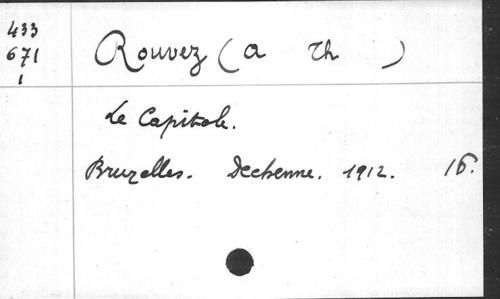 433
671
1
Rouvez (A Th )
Le Capitole.
Bruxelles. Dechenne. 1912. 16.